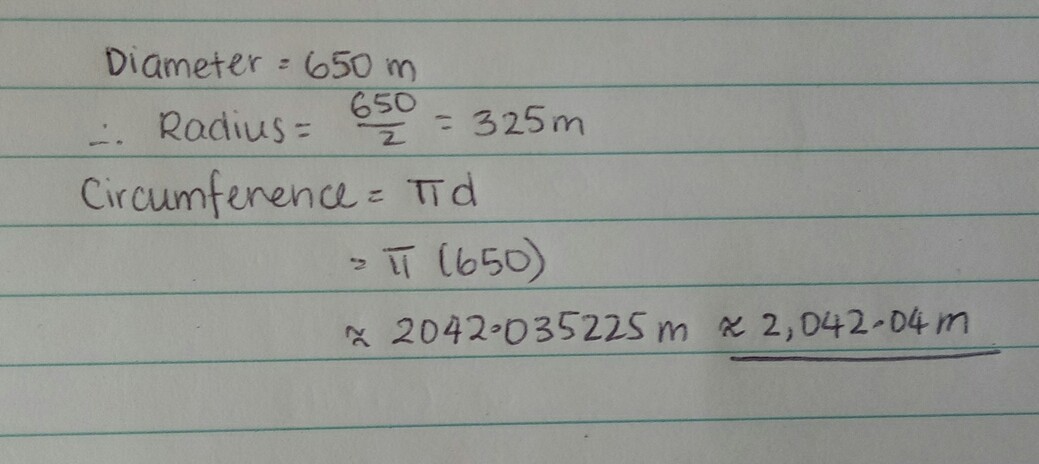 Diameter = 650 m
∴ Radius = 650/2 = 325m
Circumference = πd
= π (650)
≈ 2042·035225 m ≈ 2,042·04 m